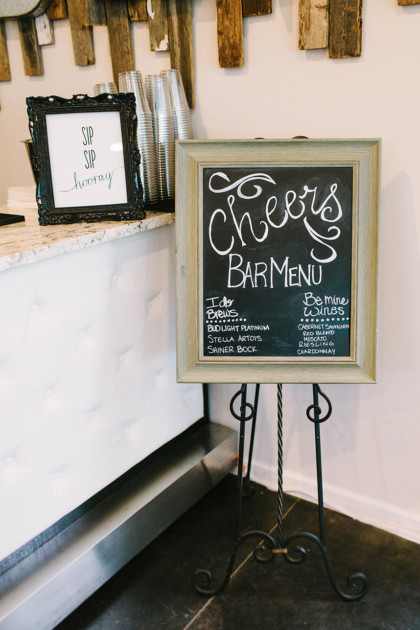 SIP
SIP
hooray
Cheers
BAR MENU
I do
BREWS
BUD LIGHT PLATINUM
STELLA ARTOIS
SHINER BOCK
Be mine
Wines
CABERNET SAUVIGNON
RED BLEND
MOSCATO
RIESLING
CHARDONNAY